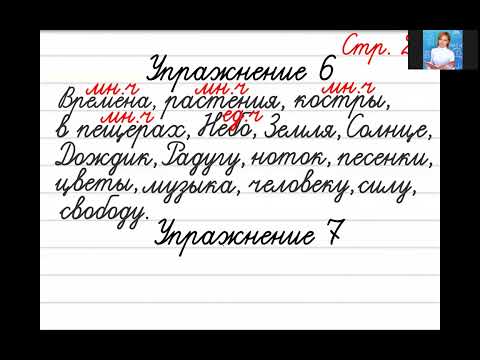 Стр. 2
Упражнение 6
мн.ч мн.ч мн.ч
Времена, растения, костры,
мн.ч ед.ч
в пещерах, Небо, Земля, Солнце,
Дождик, Радугу, ноток, песенки,
цветы, музыка, человеку, силу,
свободу.
Упражнение 7